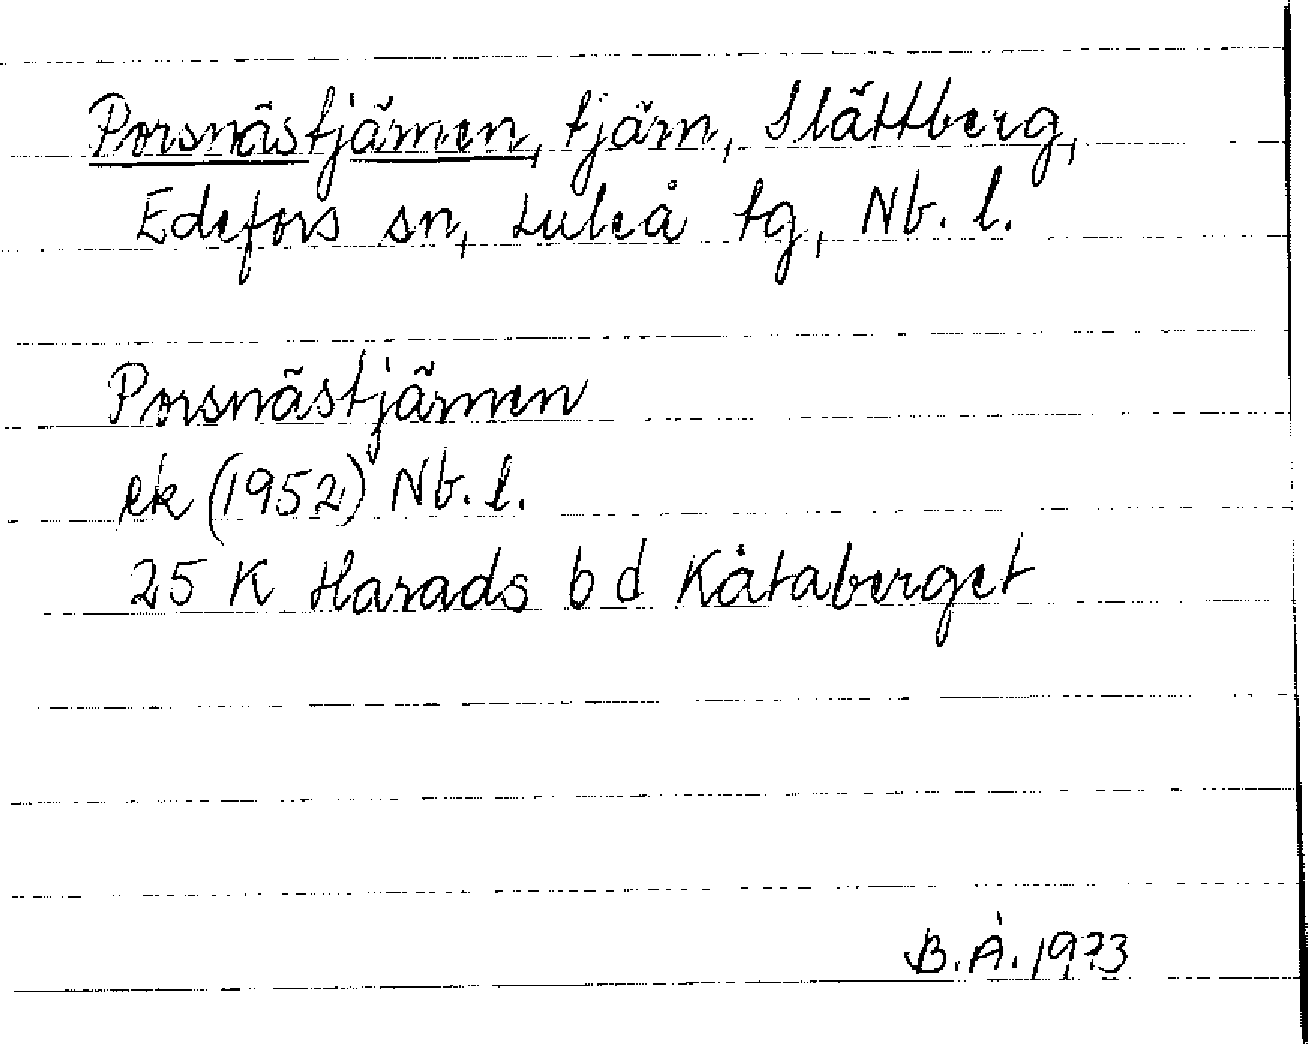 Porsnästjärnen, tjärn, Slättberg,
Edefors sn, Luleå tg, Nb. l.
Porsnästjärnen
ek (1952) Nb. l.
25 K Harads b d Kåtaberget
B.Å. 1973